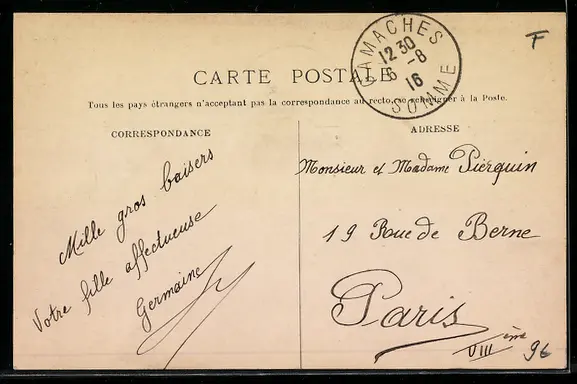 F
GAMACHES
12 30
6 -8
16
SOMME
CARTE POSTALE
Tous les pays étrangers n'acceptant pas la correspondance au recto, se renseigner à la Poste.
CORRESPONDANCE
Mille gros baisers
Votre fille affectueuse
Germaine
ADRESSE
Monsieur et Madame Pierquin
19 Rue de Berne
Paris
VIIIème
96